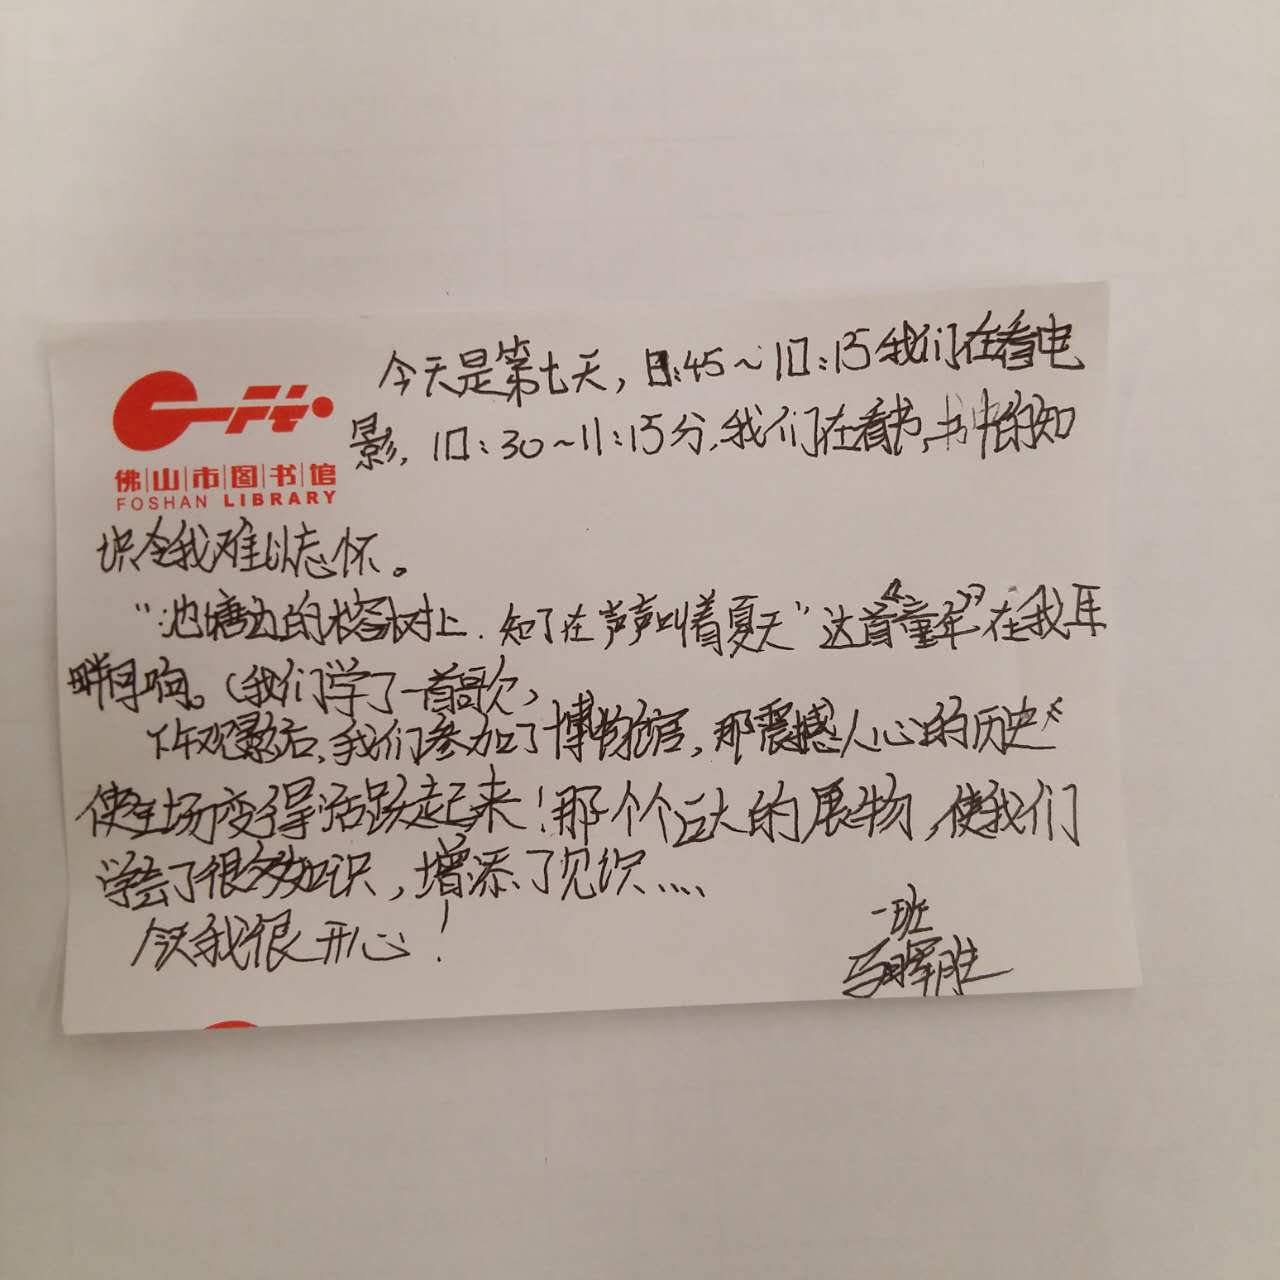 今天是第七天，8:45～10:15我们在看电
影，10:30～11:15分，我们在看书，书中的知
佛山市图书馆
FOSHAN LIBRARY
识令我难以忘怀。
“池塘边的榕树上，知了在声声叫着夏天”这首《童年》在我耳
畔回响。（我们学了一首歌）
下午观影后，我们参加了博物馆，那震撼人心的历史
使全场变得活跃起来！那个个巨大的展物，使我们
学会了很多知识，增添了见识....
今天我很开心！
一班
马晖胜